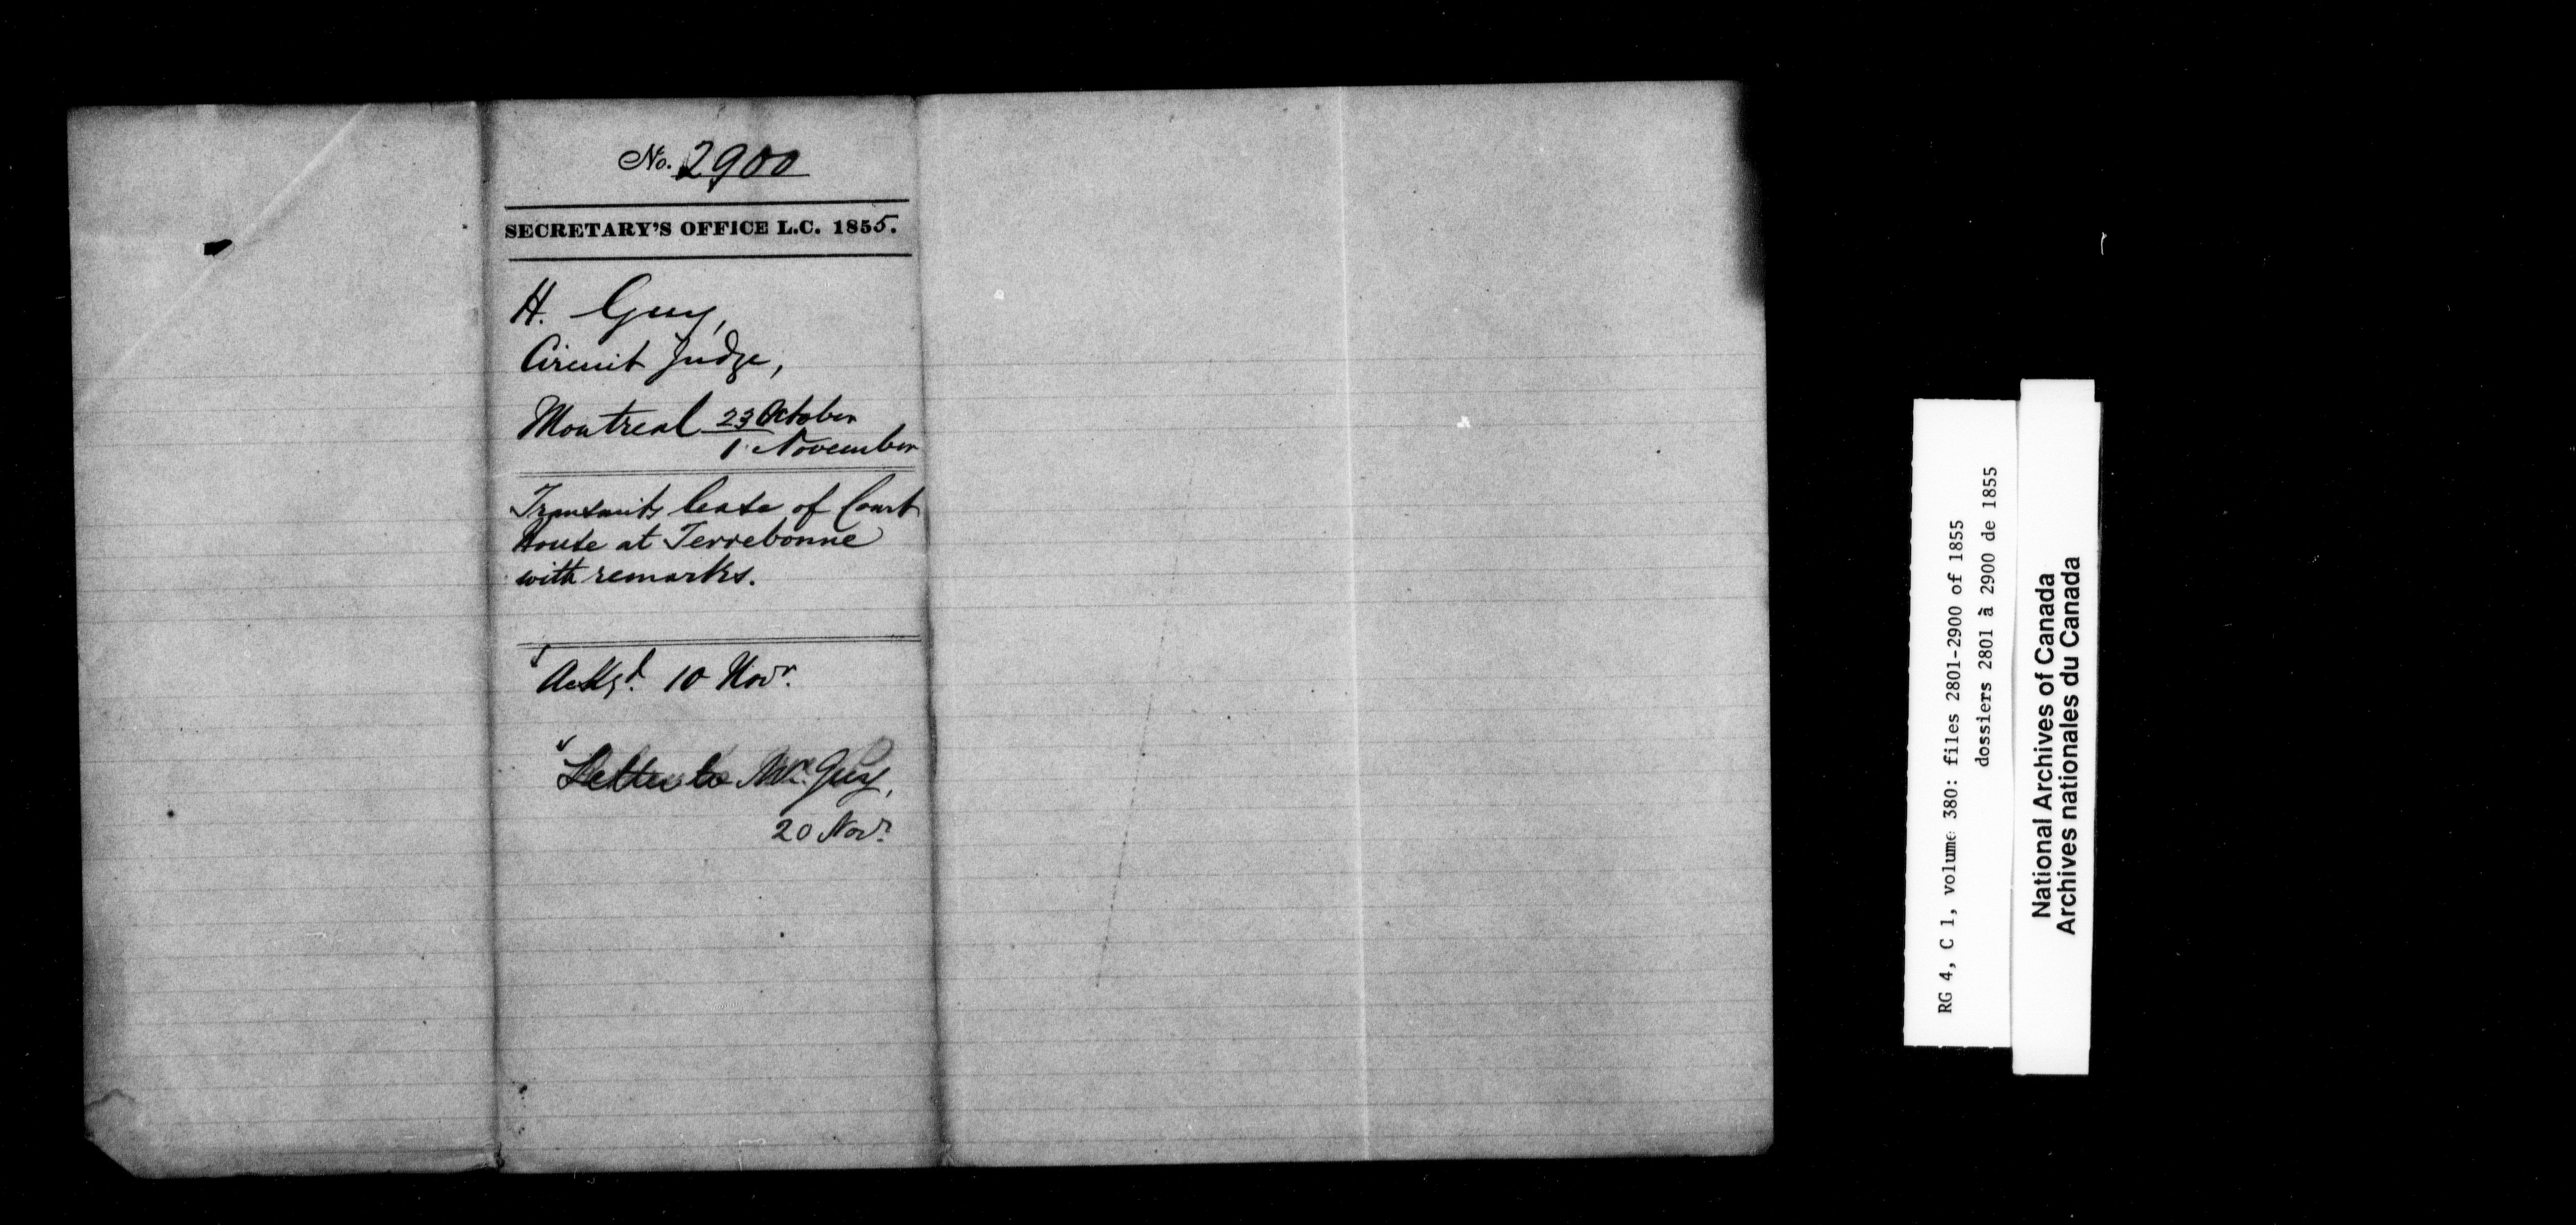 No. 2900
SECRETARY'S OFFICE L.C. 1855.
H. Guy,
Circuit Judge,
Montreal 23 October
1. November
Transmits lease of Court
house at Terrebonne
with remarks.
Ackgd. 10 Novr.
Letter to Mr. Guy,
20 Novr.
RG 4, C 1, volume 380: files 2801-2900 of 1855
dossiers 2801 à 2900 de 1855
National Archives of Canada
Archives nationales du Canada